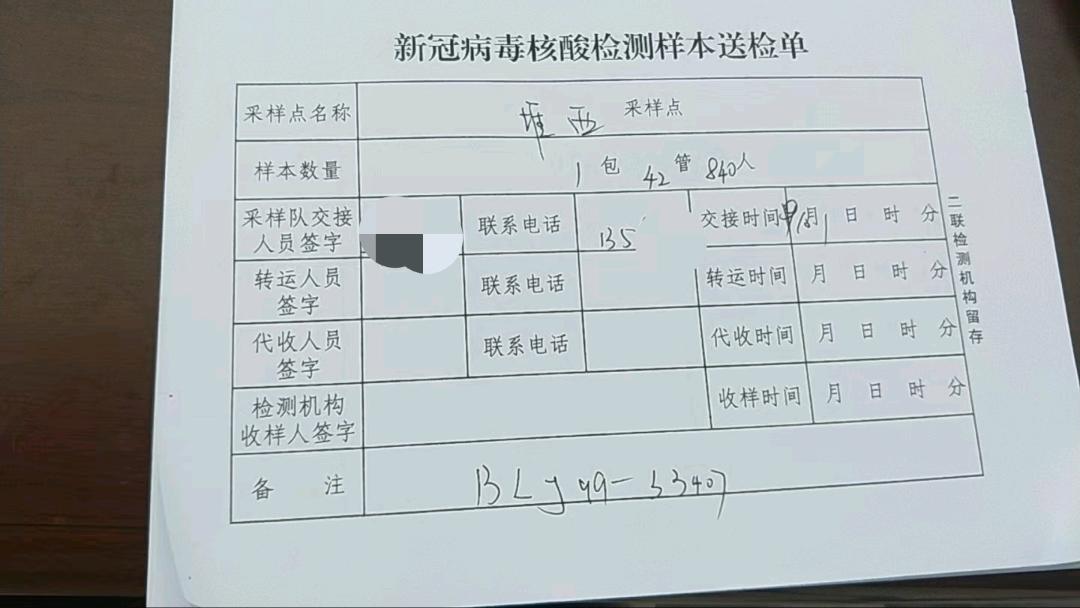 新冠病毒核酸检测样本送检单
采样点名称 堆西 采样点
样本数量 1 包 42 管 840人
采样队交接人员签字 联系电话 135 交接时间 月 日 时 分
转运人员签字 联系电话 转运时间 月 日 时 分
代收人员签字 联系电话 代收时间 月 日 时 分
检测机构收样人签字 收样时间 月 日 时 分
备 注
二联检测机构留存